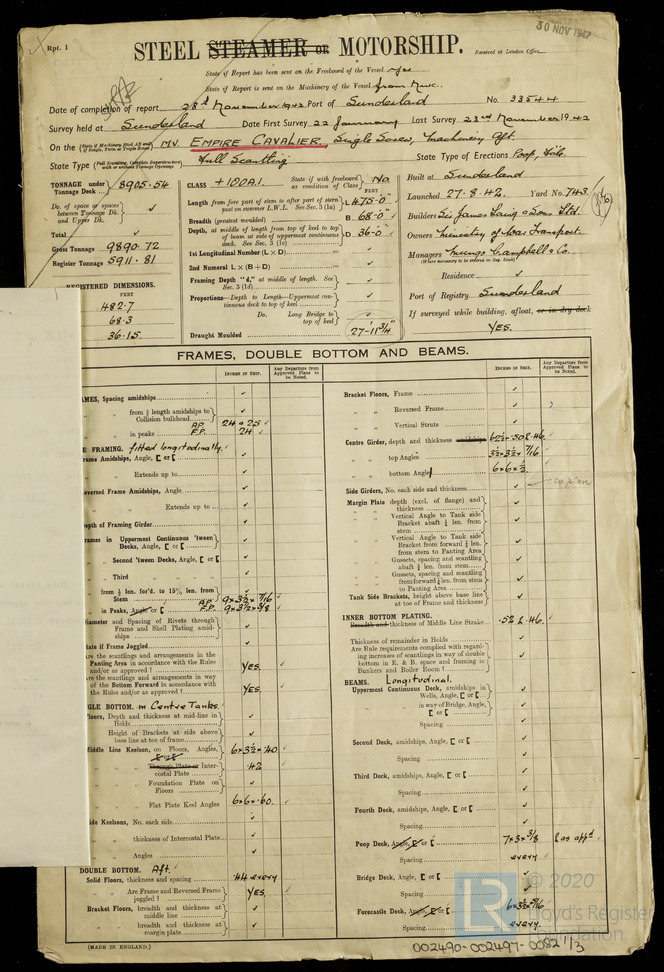 Rpt. 1
30 NOV 1942
STEEL STEAMER OR MOTORSHIP.
Received at London Office
State if Report has been sent on the Freeboard of the Vessel Yes
State if Report is sent on the Machinery of the Vessel from
Date of completion of report 28th November 1942 Port of Sunderland No. 33544
Survey held at Sunderland Date First Survey 22 January Last Survey 22nd November 1942
On the MV. EMPIRE CAVALIER, Single Screw, Machinery Aft.
State Type Full Scantling State Type of Erections Poop, Fcle.
TONNAGE under Tonnage Deck 8905.54
Do. of space or spaces between Tonnage Dk. and Upper Dk.
Total
Gross Tonnage 9890.72
Register Tonnage 5911.81
REGISTERED DIMENSIONS.
FEET
482.7
68.3
36.15.
CLASS +100A1. State if with freeboard as condition of Class No
FEET
Length from fore part of stem to after part of stern post on summer L.W.L. See Sec. 3 (1a) L 475'-0"
Breadth (greatest moulded) B 68'-0"
Depth, at middle of length from top of keel to top of beam at side of uppermost continuous deck. See Sec. 3 (1c) D 36'-0"
1st Longitudinal Number (L × D)
2nd Numeral L × (B + D)
Framing Depth "d," at middle of length. See Sec. 3 (1d)
Proportions—Depth to Length—Uppermost continuous deck to top of keel
Do. Long Bridge to top of keel
Draught Moulded 27'-11¾"
Built at Sunderland
Launched 27.8.42. Yard No. 743.
Builders Sir James Laing & Sons Ltd.
Owners Ministry of War Transport.
Managers Mungo Campbell & Co.
(Where necessary to be entered in Reg. Book)
Residence
Port of Registry Sunderland
If surveyed while building, afloat, or in dry dock
YES.
FRAMES, DOUBLE BOTTOM AND BEAMS.
INCHES IN SHIP.
Any Departure from Approved Plans to be Noted.
INCHES IN SHIP.
Any Departure from Approved Plans to be Noted.
AMES, Spacing amidships
" " from ⅗ length amidships to Collision bulkhead
" " in peaks A.P. 24 & 25 F.P. 24
E FRAMING. fitted longitudinally.
rame Amidships, Angle, [ or [
" " Extends up to
eversed Frame Amidships, Angle
" " Extends up to
epth of Framing Girder
rames in Uppermost Continuous 'tween Decks, Angle, [ or [
" Second 'tween Decks, Angle, [ or [
" Third " " "
" from ⅕ len. for'd. to 15% len. from Stem
" in Peaks, Angle or [ A.P. 9 × 3½ × 7/16 F.P. 9 × 3½ × 3/8
iameter and Spacing of Rivets through Frame and Shell Plating amidships
tate if Frame Joggled
re the scantlings and arrangements in the Panting Area in accordance with the Rules and/or as approved? YES.
re the scantlings and arrangements in way of the Bottom Forward in accordance with the Rules and/or as approved? YES.
GLE BOTTOM. in Centre Tanks.
loors, Depth and thickness at mid-line in Holds
Height of Brackets at side above base line at toe of frame
iddle Line Keelson, on Floors, Angles, 6 × 3½ × .40
" " Through Plate or Intercostal Plate .42
" " Foundation Plate on Floors
" " Flat Plate Keel Angles 6 × 6 × .60.
ide Keelsons, No. each side
" " thickness of Intercostal Plate
" " Angles
DOUBLE BOTTOM. Aft.
Solid Floors, thickness and spacing .44 every
" " Are Frame and Reversed Frame joggled? YES
Bracket Floors, breadth and thickness at middle line
" " breadth and thickness at margin plate
(MADE IN ENGLAND.)
Bracket Floors, Frame
" " Reversed Frame
" " Vertical Struts
Centre Girder, depth and thickness
" " top Angles 3½ × 3½ × 7/16
" " bottom Angle 6 × 6 × ½
Side Girders, No. each side and thickness
Margin Plate depth (excl. of flange) and thickness
" " Vertical Angle to Tank side Bracket abaft ¼ len. from stem
" " Vertical Angle to Tank side Bracket from forward ¼ len. from stem to Panting Area
" " Gussets, spacing and scantling abaft ¼ len. from stem
" " Gussets, spacing and scantling from forward ¼ len. from stem to Panting Area
Tank Side Brackets, height above base line at toe of Frame and thickness
INNER BOTTOM PLATING.
Breadth and thickness of Middle Line Strake .52 & .46.
Thickness of remainder in Holds
Are Rule requirements complied with regarding increases of scantlings in way of double bottom in E. & B. space and framing in Bunkers and Boiler Room?
BEAMS. Longitudinal.
Uppermost Continuous Deck, amidships in Wells, Angle, [ or [
" " in way of Bridge, Angle, [ or [
Spacing
Second Deck, amidships, Angle, [ or [
Spacing
Third Deck, amidships, Angle, [ or [
Spacing
Fourth Deck, amidships, Angle, [ or [
Spacing
Poop Deck, Angle, [ or [ 7 × 3 × 3/8 as appd
Spacing every
Bridge Deck, Angle, [ or [
Spacing
Forecastle Deck, Angle, [ or [
Spacing every
LR © 2020
Lloyd's Register
Foundation
002490-002497-0082 1/3